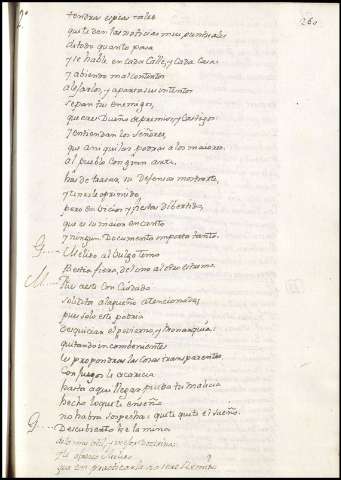 260
tendras espias tales
que te den las noticias mui puntuales
de todo quanto pasa
y se hable en cada Calle, y cada Casa
y abiendo mal contentos
alejarlos, y apartar su intento
sepan tus enemigos,
que eres Dueño de premios y Castigos
y entiendan los Señores,
que aniquilar podras a los maiores
al pueblo con gran arte,
has de tratar, su defensa mostrarte,
y tenerle oprimido,
pero en vicios y fiestas dibertido,
que es su maior encanto
y ningun Documento importa tanto.
G. Melino al bulgo temo
bestia fiera, de uno al otro estremo
M. Por aeste con Cuidado
solicita alagueño
pues solo este podria
desquiciar el govierno, y Monarquia:
quitando incombenientes
le propondras las cosas transparentes,
con Juegos le acaricia
hasta aqui llegar pudo tu malicia
hecho loque te enseño
no habra sospecha que te quite el sueño.
G. Descubierto he la mina
de lo mas util, y
Yo ofrezco Melino
que en practicarla no sere